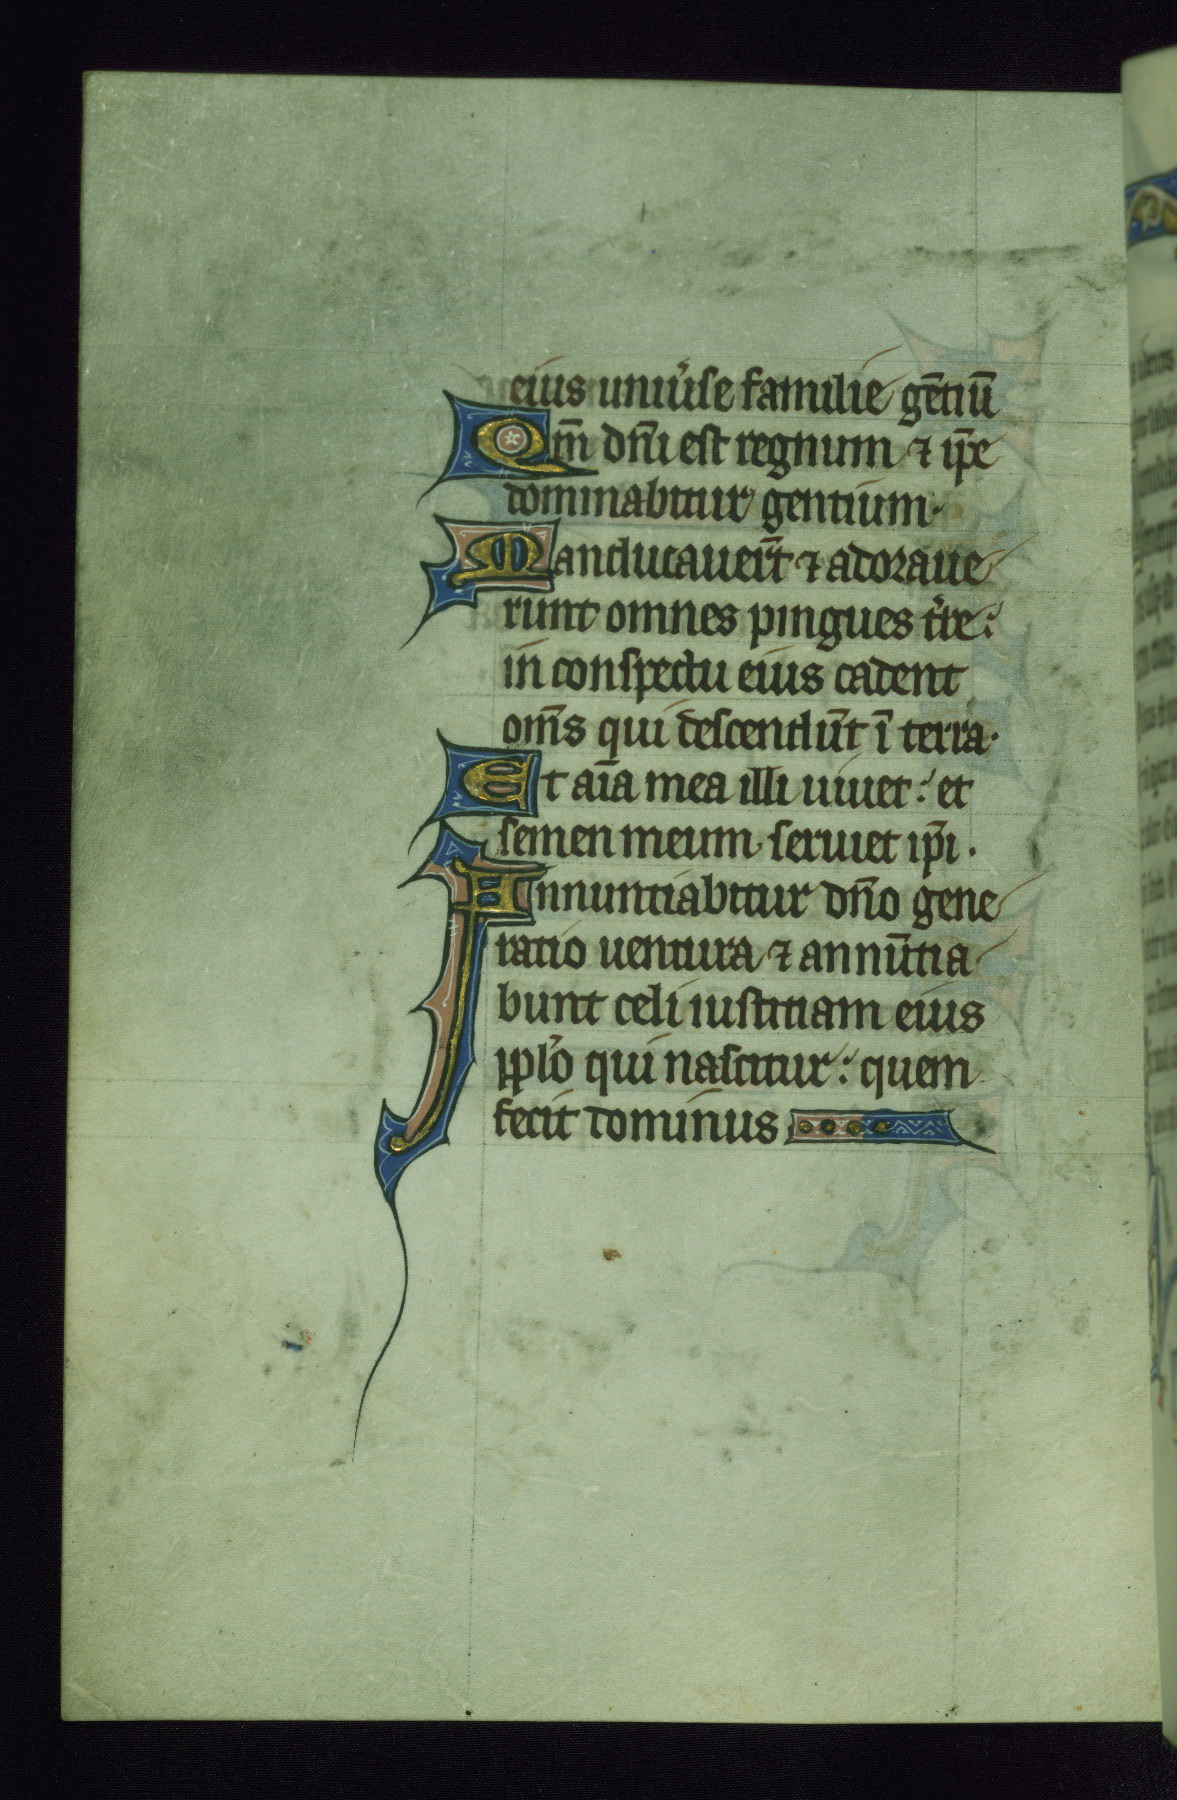 eius uniu'se familie gētiū
Qm̄ dn̄i est regnum ⁊ ip̄e
dominabitur gentium·
Manducauer̄t ⁊ adoraue
runt omnes pingues t're:
in conspectu eius cadent
om̄s qui descendūt ī terra·
Et aīa mea illi uiuet: et
semen meum seruiet ip̄i·
Annuntiabitur dn̄o gene
ratio uentura ⁊ annūtia
bunt celi iustitiam eius
ꝓpl'o qui nascitur: quem
fecit dominus